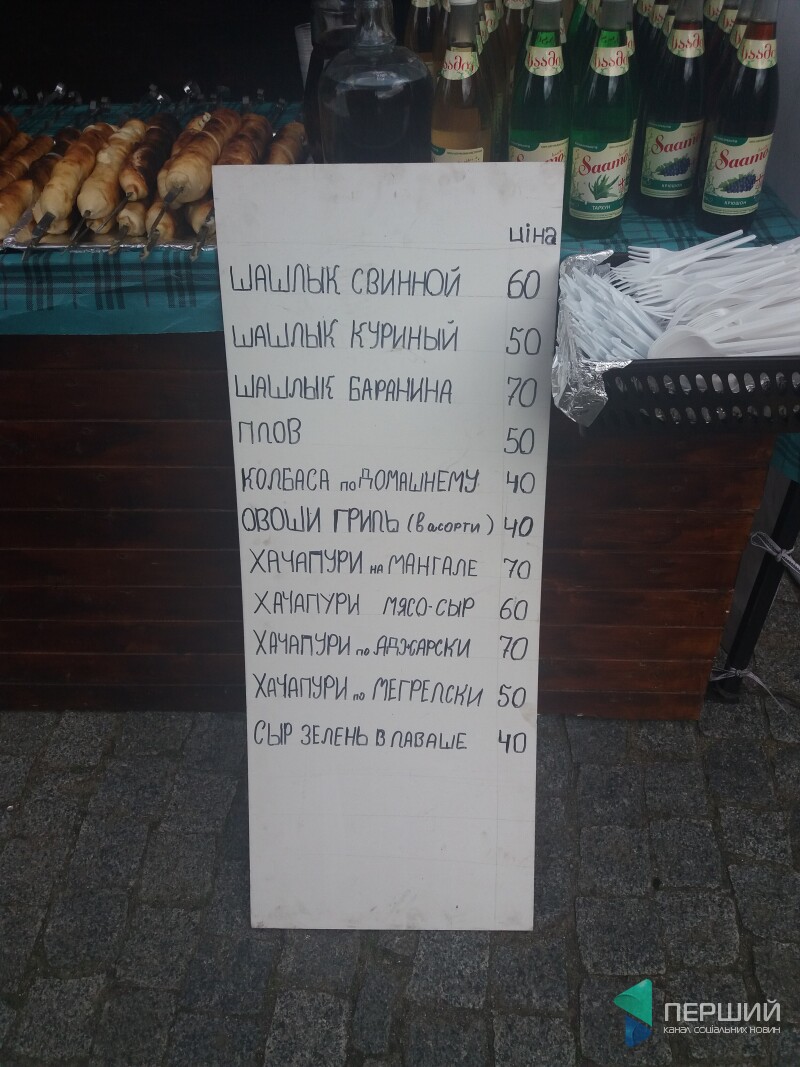 საამო
საამო
საამო
საამო
Saamo
ТАРХУН
Saamo
КРЮШОН
Saamo
КРЮШОН
ціна
ШАШЛЫК СВИННОЙ 60
ШАШЛЫК КУРИНЫЙ 50
ШАШЛЫК БАРАНИНА 70
ПЛОВ 50
КОЛБАСА по ДОМАШНЕМУ 40
ОВОШИ ГРИЛЬ (в асорти) 40
ХАЧАПУРИ на МАНГАЛЕ 70
ХАЧАПУРИ МЯСО-СЫР 60
ХАЧАПУРИ по АДЖАРСКИ 70
ХАЧАПУРИ по МЕГРЕЛСКИ 50
СЫР ЗЕЛЕНЬ В ЛАВАШЕ 40
ПЕРШИЙ
КАНАЛ СОЦІАЛЬНИХ НОВИН